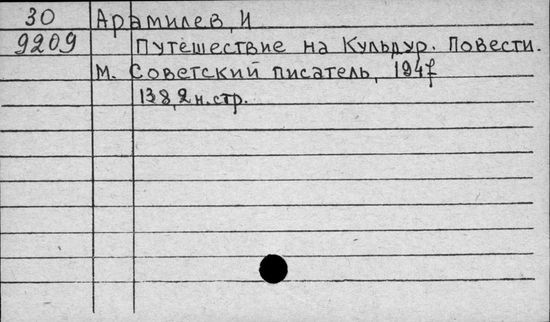 30 Арамилев, И
9209 Путешествие на Кульдур. Повести.
М. Советский писатель, 1947
138,2 н.стр.